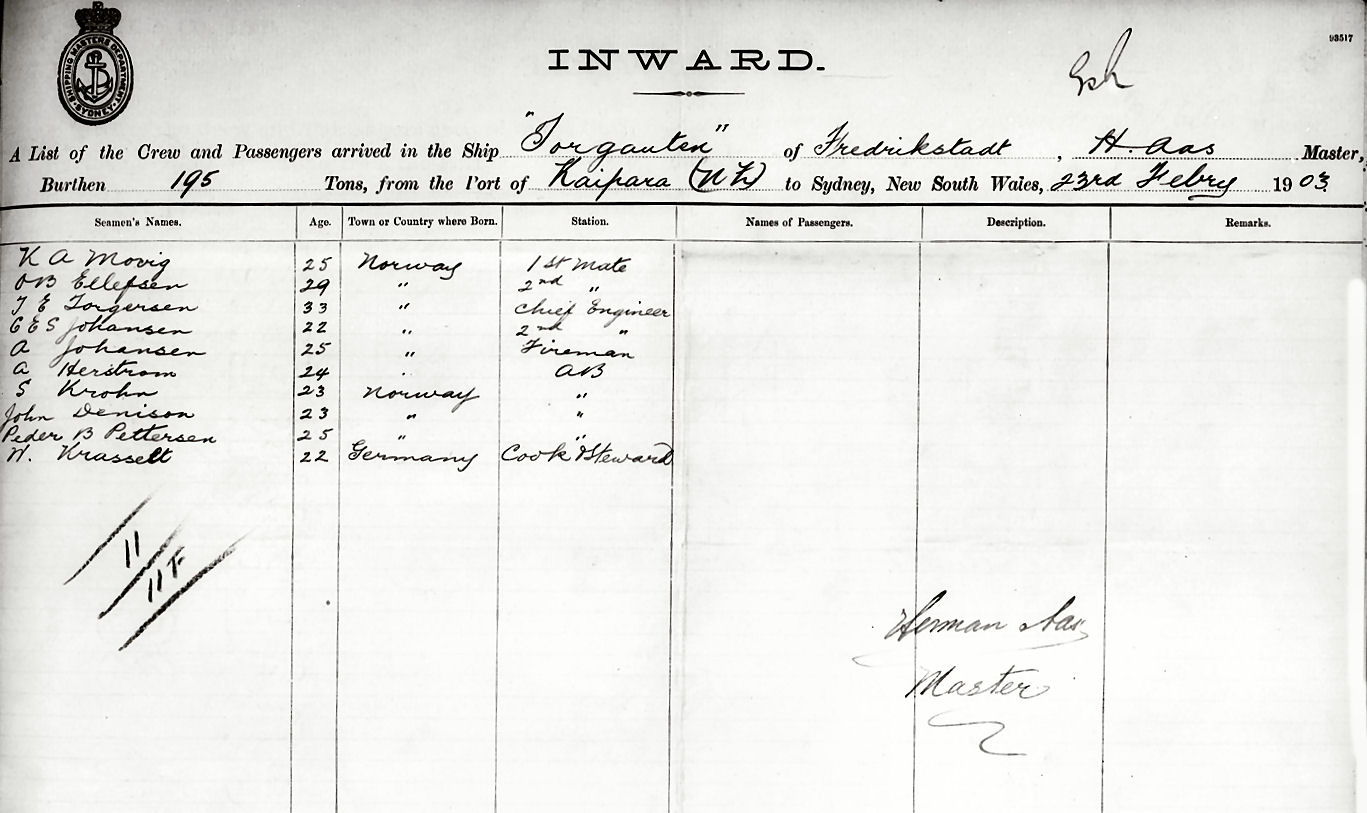 93517
SHIPPING MASTERS DEPARTMENT
SYDNEY
INWARD.
A List of the Crew and Passengers arrived in the Ship "Torgauten" of Fredrikstadt, H. Aas Master,
Burthen 195 Tons, from the Port of Kaipara (NZ) to Sydney, New South Wales, 23rd Febry 1903
Seamen's Names. Age. Town or Country where Born. Station. Names of Passengers. Description. Remarks.
K A Movig 25 Norway 1st Mate
O B Ellefsen 29 " 2nd "
T E Torgersen 33 " Chief Engineer
C E S Johansen 22 " 2nd "
A Johansen 25 " Fireman
A Herstrom 24 " AB
S Krohn 23 Norway "
John Denison 23 " "
Peder B Pettersen 25 " "
W. Krasselt 22 Germany Cook & Steward
11
11 F
Herman Aas
Master